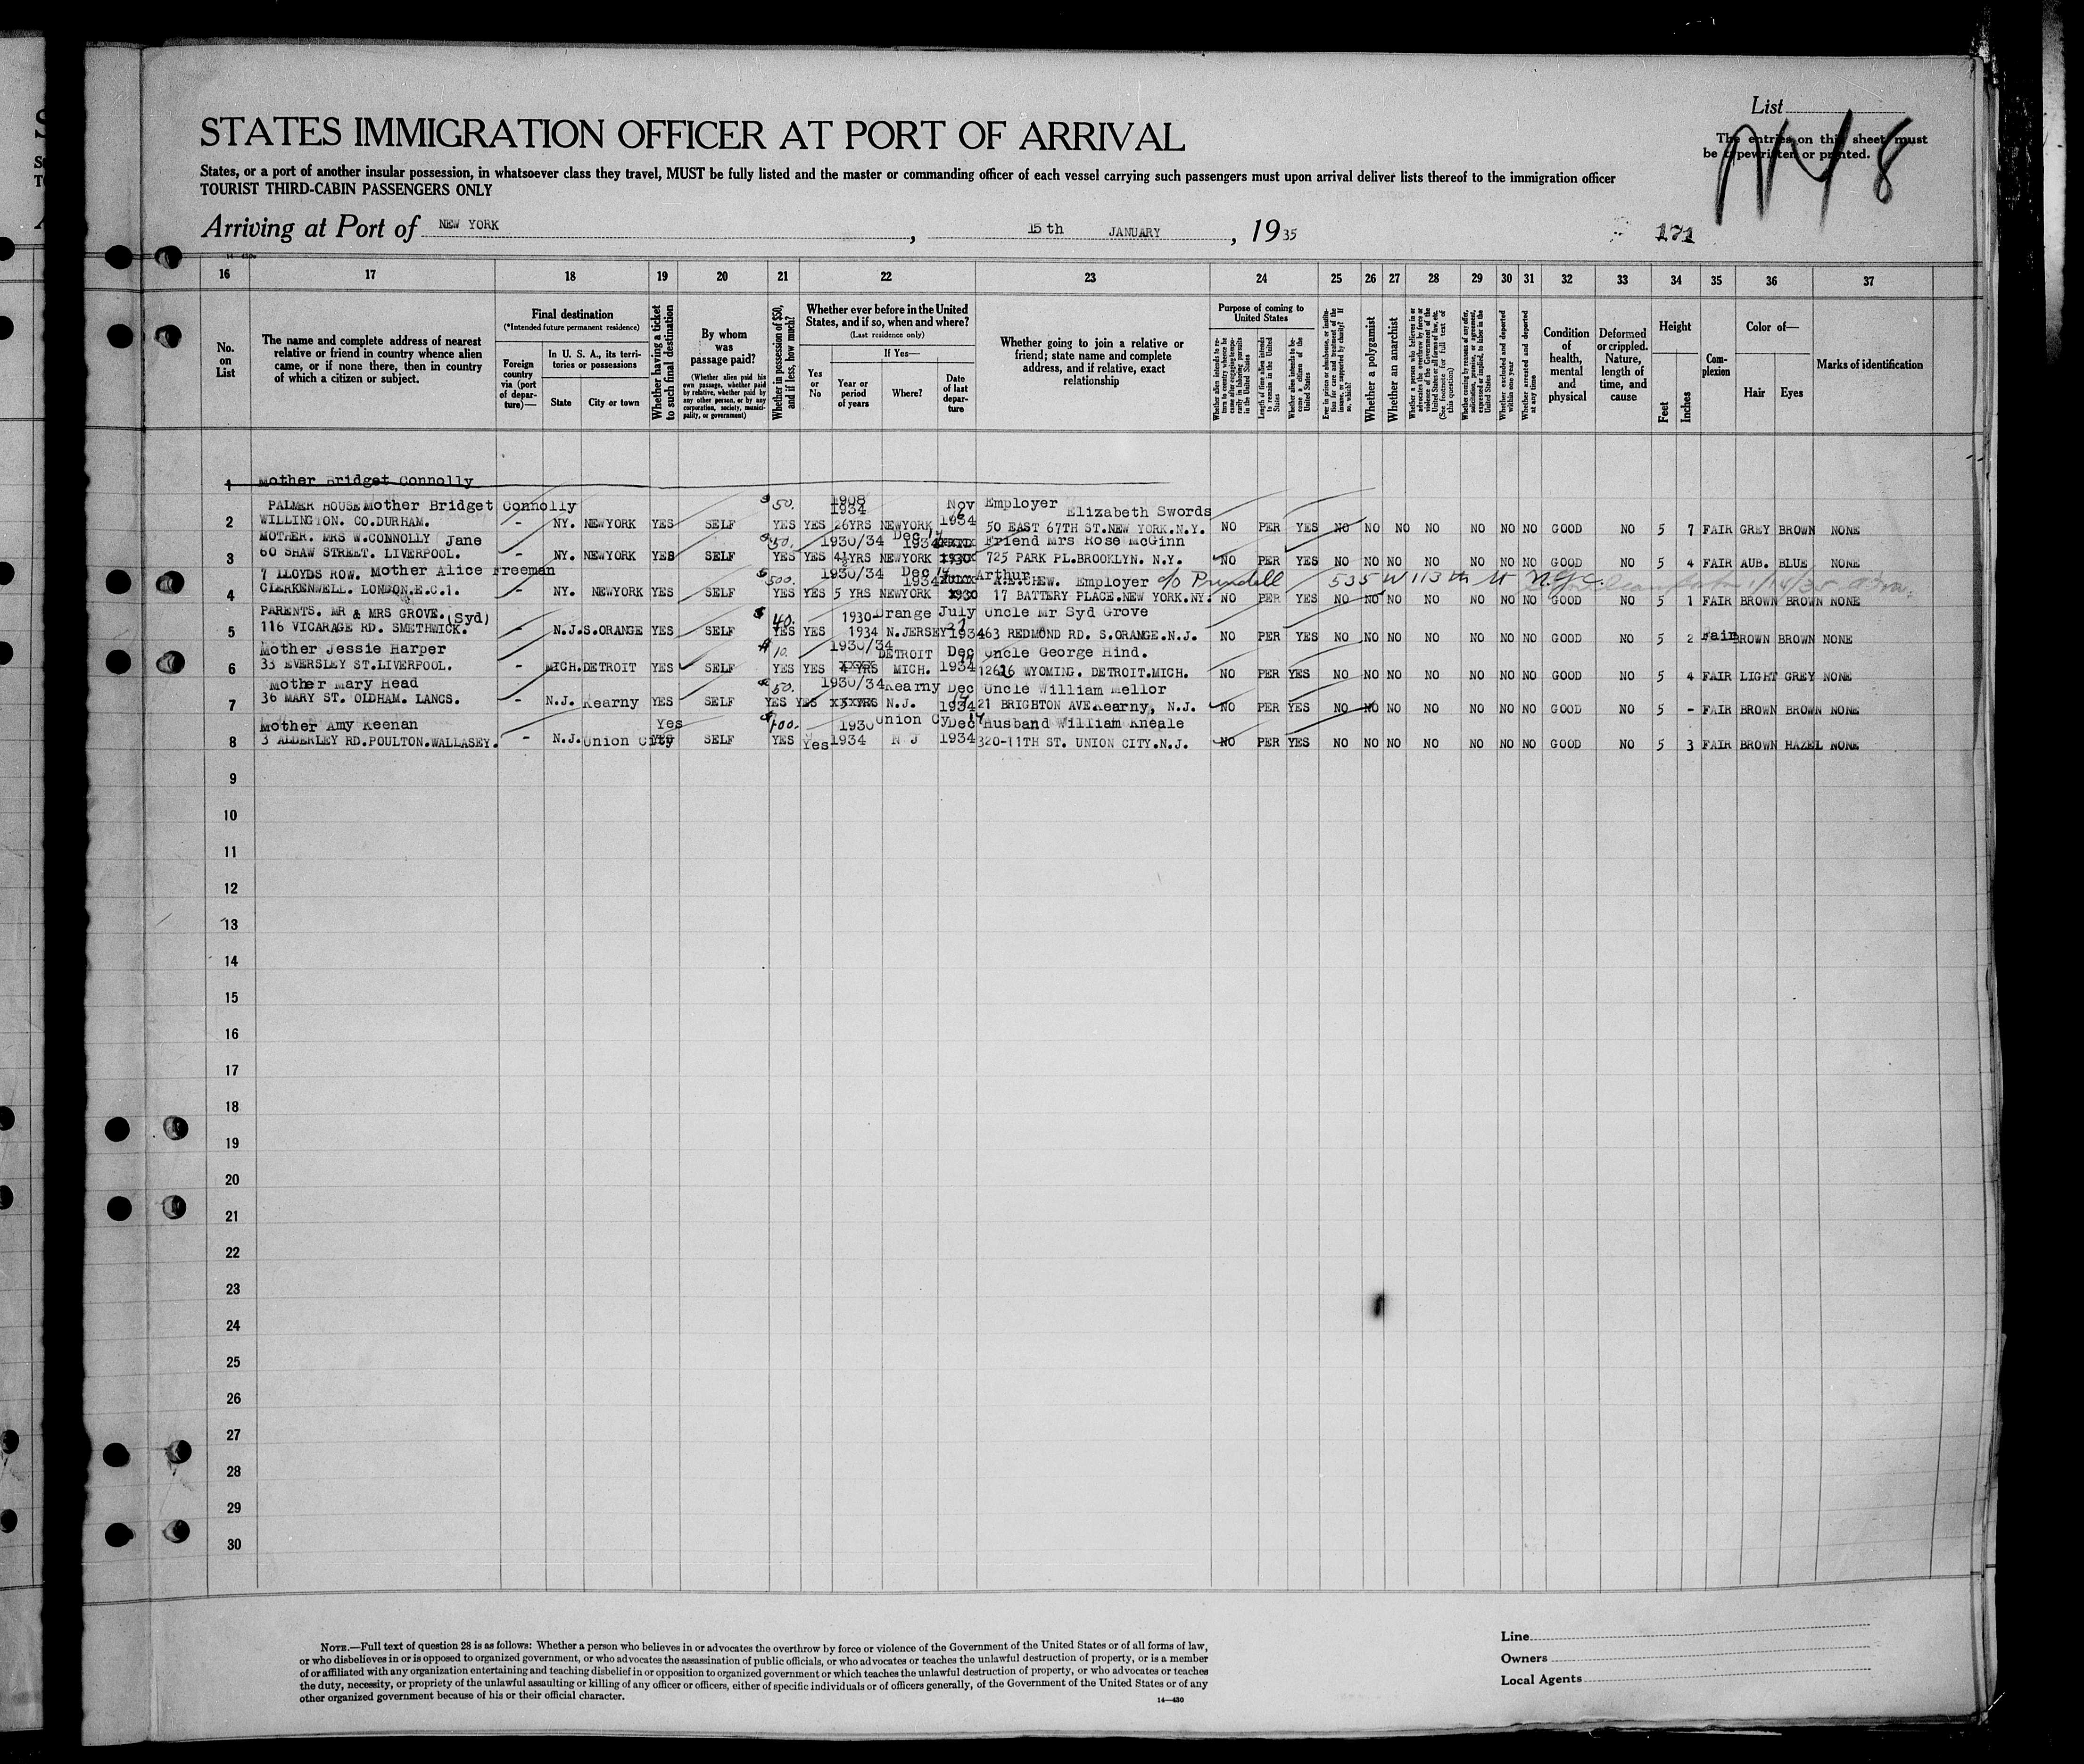 List
STATES IMMIGRATION OFFICER AT PORT OF ARRIVAL
The entries on this sheet must
be typewritten or printed.
States, or a port of another insular possession, in whatsoever class they travel, MUST be fully listed and the master or commanding officer of each vessel carrying such passengers must upon arrival deliver lists thereof to the immigration officer
TOURIST THIRD-CABIN PASSENGERS ONLY
Arriving at Port of NEW YORK, 15th JANUARY, 1935
171
14—430
16 17 18 19 20 21 22 23 24 25 26 27 28 29 30 31 32 33 34 35 36 37
No. on List
The name and complete address of nearest relative or friend in country whence alien came, or if none there, then in country of which a citizen or subject.
Final destination
(*Intended future permanent residence)
Foreign country via (port of departure)—
In U. S. A., its territories or possessions
State
City or town
Whether having a ticket to such final destination
By whom was passage paid?
(Whether alien paid his own passage, whether paid by relative, whether paid by any other person, or by any corporation, society, municipality, or government)
Whether in possession of $50, and if less, how much?
Whether ever before in the United States, and if so, when and where?
(Last residence only)
Yes or No
If Yes—
Year or period of years
Where?
Date of last departure
Whether going to join a relative or friend; state name and complete address, and if relative, exact relationship
Purpose of coming to United States
Whether alien intends to return to country whence he came after engaging temporarily in laboring pursuits in the United States
Length of time alien intends to remain in the United States
Whether alien intends to become a citizen of the United States
Ever in prison or almshouse, or institution for care and treatment of the insane, or supported by charity? If so, which?
Whether a polygamist
Whether an anarchist
Whether a person who believes in or advocates the overthrow by force or violence of the Government of the United States or all forms of law, etc. (See footnote for full text of this question)
Whether coming by reasons of any offer, solicitation, promise, or agreement, expressed or implied, to labor in the United States
Whether excluded and deported within one year
Whether arrested and deported at any time
Condition of health, mental and physical
Deformed or crippled. Nature, length of time, and cause
Height
Feet
Inches
Complexion
Color of—
Hair
Eyes
Marks of identification
1 Mother Bridget Connolly
PALMER HOUSE Mother Bridget Connolly $50. 1908 1934 Nov Employer Elizabeth Swords
2 WILLINGTON. CO.DURHAM. - NY. NEWYORK YES SELF YES YES 26YRS NEWYORK 1934 50 EAST 67TH ST.NEW YORK.N.Y. NO PER YES NO NO NO NO NO NO NO GOOD NO 5 7 FAIR GREY BROWN NONE
MOTHER. MRS W.CONNOLLY Jane $50. 1930/34 Dec 1934 Friend Mrs Rose McGinn
3 60 SHAW STREET. LIVERPOOL. - NY. NEWYORK YES SELF YES YES 4½YRS NEWYORK 1930 725 PARK PL.BROOKLYN. N.Y. NO PER YES NO NO NO NO NO NO NO GOOD NO 5 4 FAIR AUB. BLUE NONE
7 LLOYDS ROW. Mother Alice Freeman $500. 1930/34 Dec 14 1934 Arthur R.E.CHEW. Employer c/o Prundell 535 W 113 th St N.Y.C.
4 CLERKENWELL. LONDON.E.C.1. - NY. NEWYORK YES SELF YES YES 5 YRS NEWYORK 1930 17 BATTERY PLACE.NEW YORK.NY. NO PER YES NO NO NO NO NO NO NO GOOD NO 5 1 FAIR BROWN BROWN NONE
PARENTS. MR & MRS GROVE.(Syd) $40. 1930 Orange July 27 Uncle Mr Syd Grove
5 116 VICARAGE RD. SMETHWICK. - N.J. S.ORANGE YES SELF YES YES 1934 N.JERSEY 1934 463 REDMOND RD. S.ORANGE.N.J. NO PER YES NO NO NO NO NO NO NO GOOD NO 5 2 Fair BROWN BROWN NONE
Mother Jessie Harper $10. 1930/34 DETROIT Dec Uncle George Hind.
6 33 EVERSLEY ST.LIVERPOOL. - MICH. DETROIT YES SELF YES YES 4 YRS MICH. 1934 12626 WYOMING. DETROIT.MICH. NO PER YES NO NO NO NO NO NO NO GOOD NO 5 4 FAIR LIGHT GREY NONE
Mother Mary Head $50. 1930/34 Kearny Dec Uncle William Mellor
7 36 MARY ST. OLDHAM. LANCS. - N.J. Kearny YES SELF YES YES N.J. 1934 21 BRIGHTON AVE.Kearny, N.J. NO PER YES NO NO NO NO NO NO NO GOOD NO 5 - FAIR BROWN BROWN NONE
Mother Amy Keenan Yes $100. 1930 Union Cy Dec 14 Husband William Kneale
8 3 ALDERLEY RD.POULTON.WALLASEY. - N.J. Union City YES SELF YES Yes 1934 N J 1934 320-11TH ST. UNION CITY.N.J. NO PER YES NO NO NO NO NO NO NO GOOD NO 5 3 FAIR BROWN HAZEL NONE
9
10
11
12
13
14
15
16
17
18
19
20
21
22
23
24
25
26
27
28
29
30
NOTE.—Full text of question 28 is as follows: Whether a person who believes in or advocates the overthrow by force or violence of the Government of the United States or of all forms of law,
or who disbelieves in or is opposed to organized government, or who advocates the assassination of public officials, or who advocates or teaches the unlawful destruction of property, or is a member
of or affiliated with any organization entertaining and teaching disbelief in or opposition to organized government or which teaches the unlawful destruction of property, or who advocates or teaches
the duty, necessity, or propriety of the unlawful assaulting or killing of any officer or officers, either of specific individuals or of officers generally, of the Government of the United States or of any
other organized government because of his or their official character.
14—430
Line
Owners
Local Agents